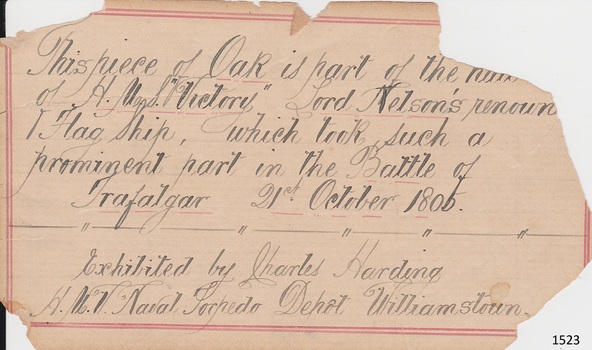 This piece of Oak is part of the
of H.M.S. "Victory" Lord Nelson's renown
Flag Ship, which took such a
prominent part in the Battle of
Trafalgar 21st October 1805.
" " " " "
Exhibited by Charles Harding
H.M.V. Naval Torpedo Depôt Williamstown.
1523